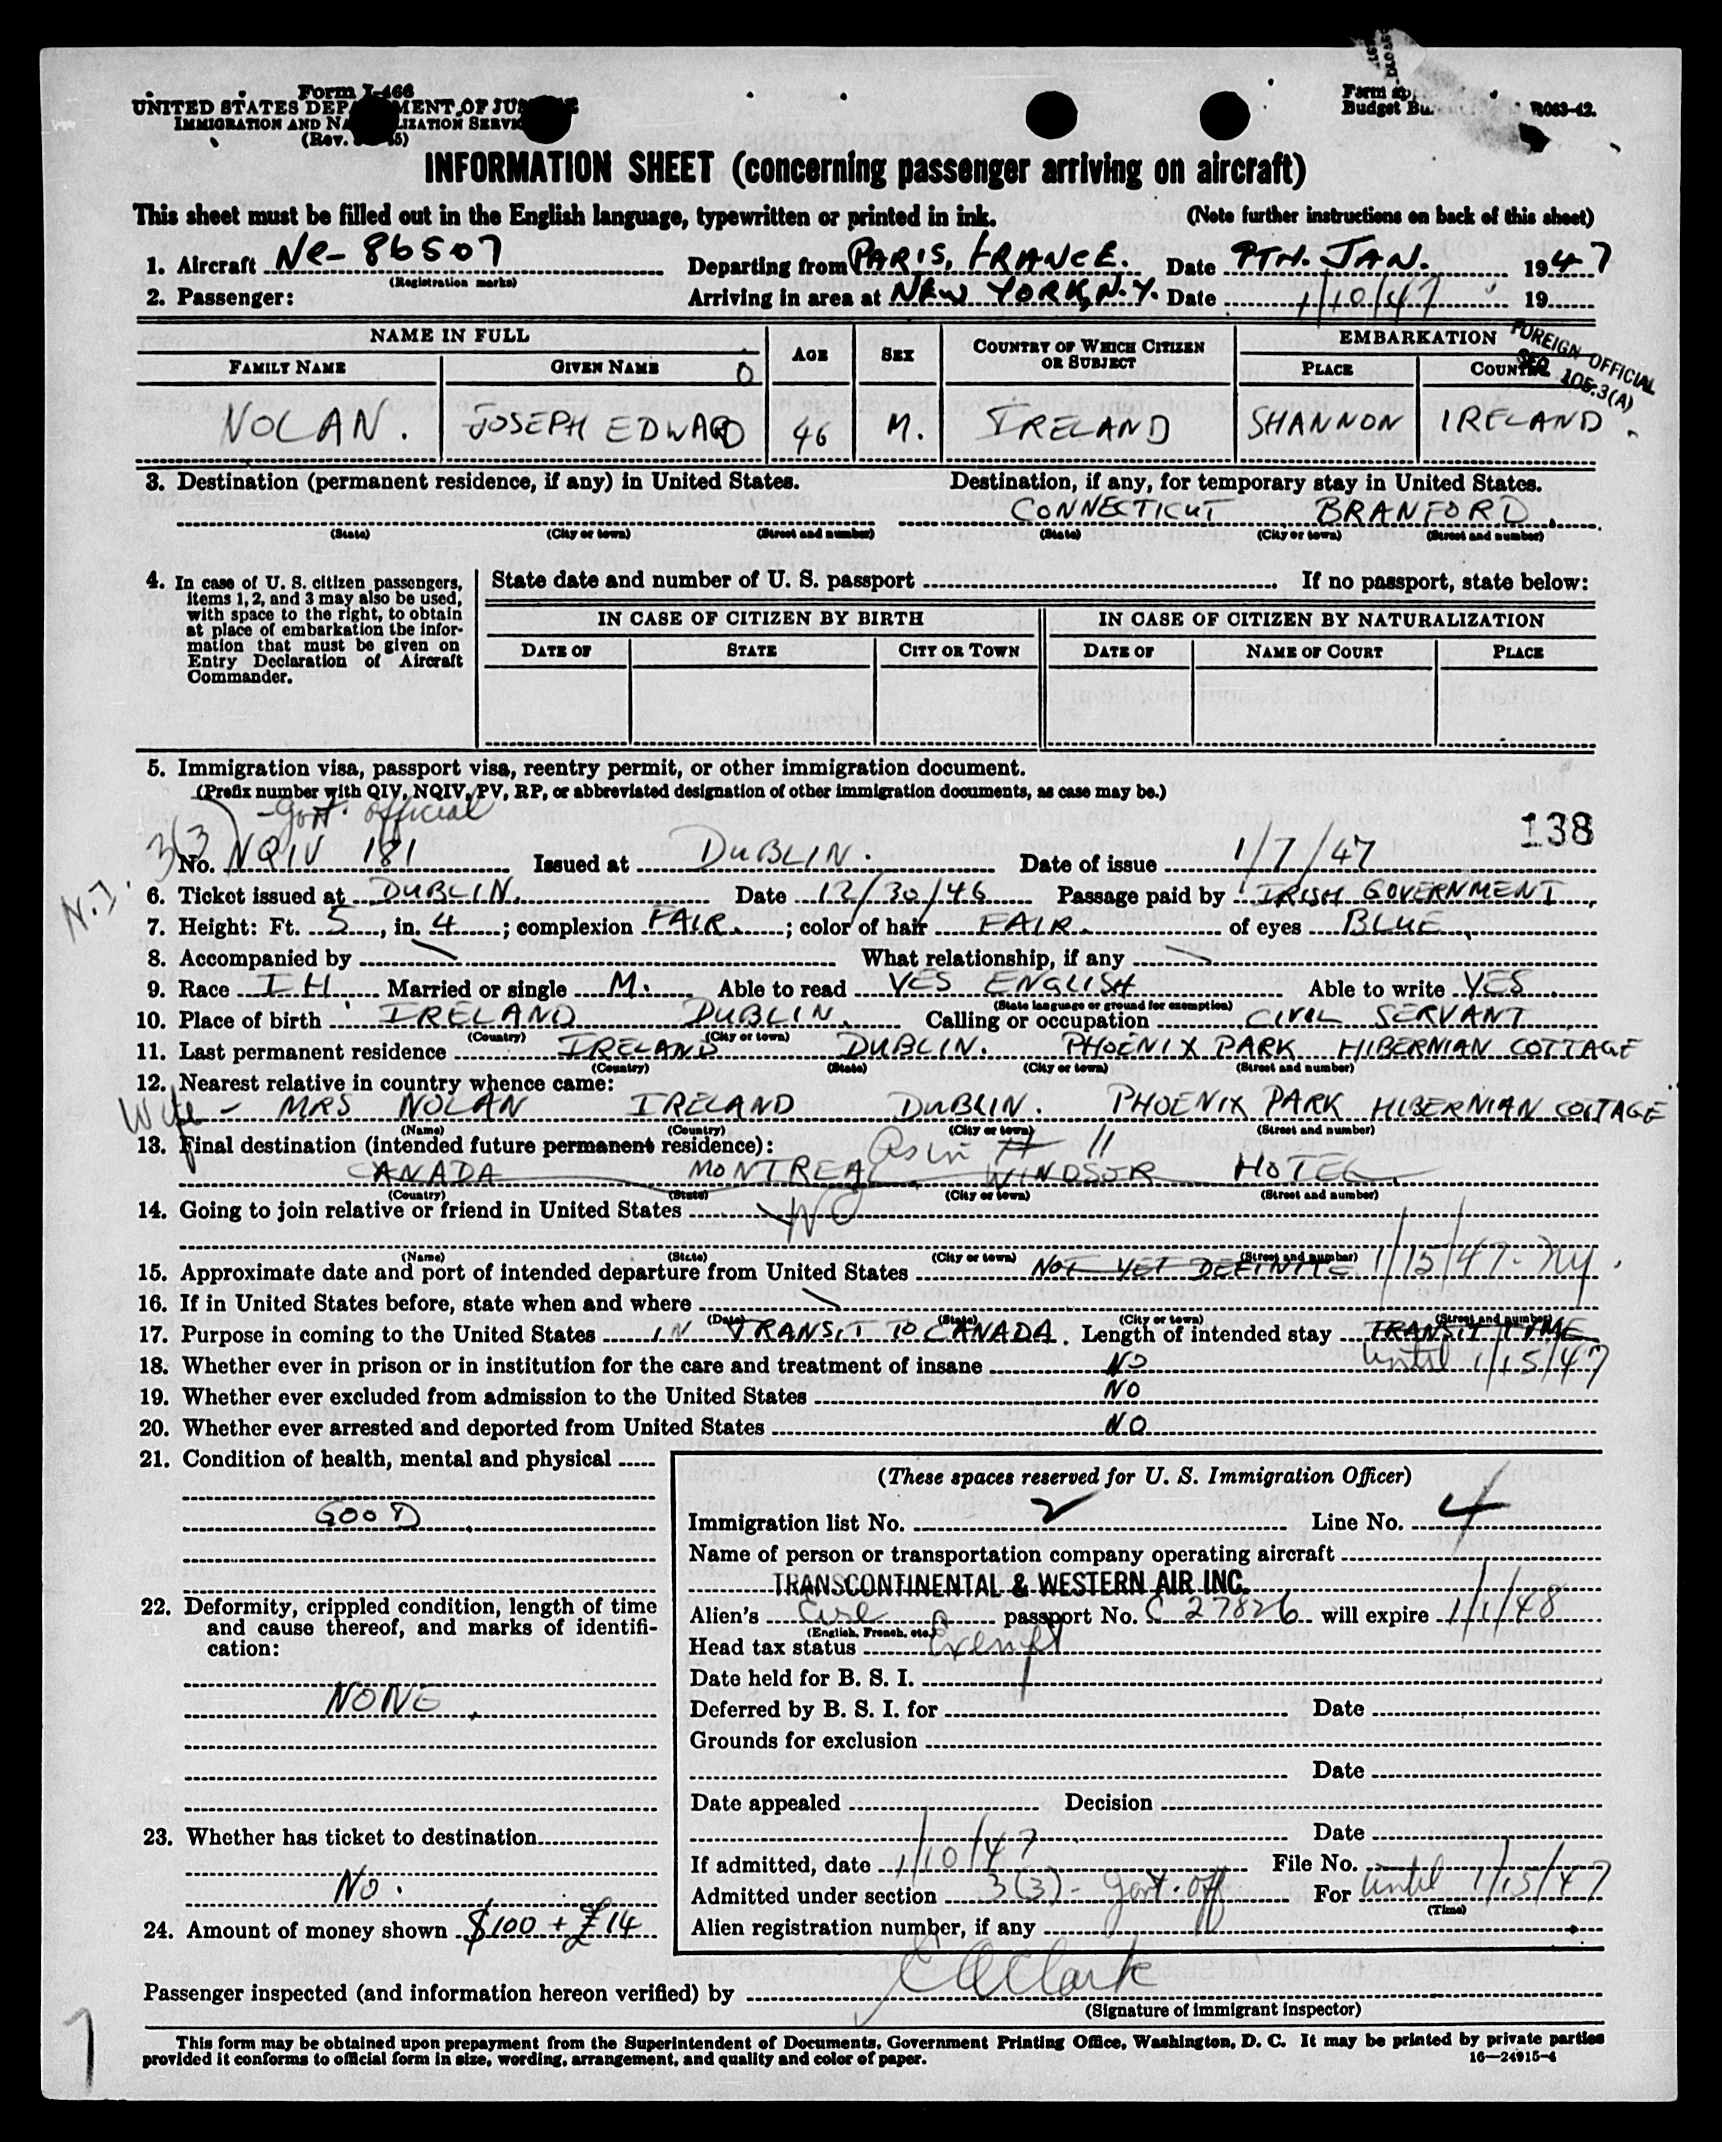 Form I-466
UNITED STATES DEPARTMENT OF JUSTICE
IMMIGRATION AND NATURALIZATION SERVICE
(Rev.
Budget Bu R063-42.
INFORMATION SHEET (concerning passenger arriving on aircraft)
This sheet must be filled out in the English language, typewritten or printed in ink. (Note further instructions on back of this sheet)
1. Aircraft NC-86507 Departing from PARIS, FRANCE. Date 9TH. JAN. 1947
(Registration marks)
2. Passenger: Arriving in area at NEW YORK, N.Y. Date 1/10/47 19
NAME IN FULL AGE SEX COUNTRY OF WHICH CITIZEN OR SUBJECT EMBARKATION
FOREIGN OFFICIAL
SEC. 105.3(A)
FAMILY NAME GIVEN NAME PLACE COUNTRY
NOLAN. JOSEPH EDWARD 46 M. IRELAND SHANNON IRELAND
3. Destination (permanent residence, if any) in United States. Destination, if any, for temporary stay in United States.
CONNECTICUT BRANFORD.
(State) (City or town) (Street and number) (State) (City or town) (Street and number)
4. In case of U. S. citizen passengers, items 1, 2, and 3 may also be used, with space to the right, to obtain at place of embarkation the information that must be given on Entry Declaration of Aircraft Commander.
State date and number of U. S. passport If no passport, state below:
IN CASE OF CITIZEN BY BIRTH IN CASE OF CITIZEN BY NATURALIZATION
DATE OF STATE CITY OR TOWN DATE OF NAME OF COURT PLACE
5. Immigration visa, passport visa, reentry permit, or other immigration document.
(Prefix number with QIV, NQIV, PV, RP, or abbreviated designation of other immigration documents, as case may be.)
3(3) - Govt. official
138
No. NQIV 181 Issued at DUBLIN. Date of issue 1/7/47
N.I.
6. Ticket issued at DUBLIN. Date 12/30/46 Passage paid by IRISH GOVERNMENT
7. Height: Ft. 5, in. 4; complexion FAIR.; color of hair FAIR. of eyes BLUE
8. Accompanied by What relationship, if any
9. Race IH Married or single M. Able to read YES ENGLISH Able to write YES
(State language or ground for exemption)
10. Place of birth IRELAND DUBLIN. Calling or occupation CIVIL SERVANT
(Country) (City or town)
11. Last permanent residence IRELAND DUBLIN. PHOENIX PARK HIBERNIAN COTTAGE
(Country) (State) (City or town) (Street and number)
12. Nearest relative in country whence came:
Wife - MRS NOLAN IRELAND DUBLIN. PHOENIX PARK HIBERNIAN COTTAGE
(Name) (Country) (City or town) (Street and number)
13. Final destination (intended future permanent residence): As in # 11
CANADA MONTREAL WINDSOR HOTEL.
(Country) (State) (City or town) (Street and number)
14. Going to join relative or friend in United States NO
(Name) (State) (City or town) (Street and number)
15. Approximate date and port of intended departure from United States NOT YET DEFINITE 1/15/47 - NY.
16. If in United States before, state when and where
(Date) (State) (City or town) (Street and number)
17. Purpose in coming to the United States IN TRANSIT TO CANADA. Length of intended stay TRANSIT TIME
until 1/15/47
18. Whether ever in prison or in institution for the care and treatment of insane NO
19. Whether ever excluded from admission to the United States NO
20. Whether ever arrested and deported from United States NO
21. Condition of health, mental and physical
GOOD
22. Deformity, crippled condition, length of time and cause thereof, and marks of identification:
NONE.
23. Whether has ticket to destination
NO.
24. Amount of money shown $100 + £14
(These spaces reserved for U. S. Immigration Officer)
Immigration list No. 2 Line No. 4
Name of person or transportation company operating aircraft
TRANSCONTINENTAL & WESTERN AIR INC.
Alien's Eire passport No. C 27826 will expire 1/1/48
(English, French, etc.)
Head tax status Exempt
Date held for B. S. I.
Deferred by B. S. I. for Date
Grounds for exclusion
Date
Date appealed Decision
Date
If admitted, date 1/10/47 File No.
Admitted under section 3(3) - Govt. off For until 1/15/47
(Time)
Alien registration number, if any
Passenger inspected (and information hereon verified) by Clark
(Signature of immigrant inspector)
This form may be obtained upon prepayment from the Superintendent of Documents, Government Printing Office, Washington, D. C. It may be printed by private parties
provided it conforms to official form in size, wording, arrangement, and quality and color of paper. 16—24915-4